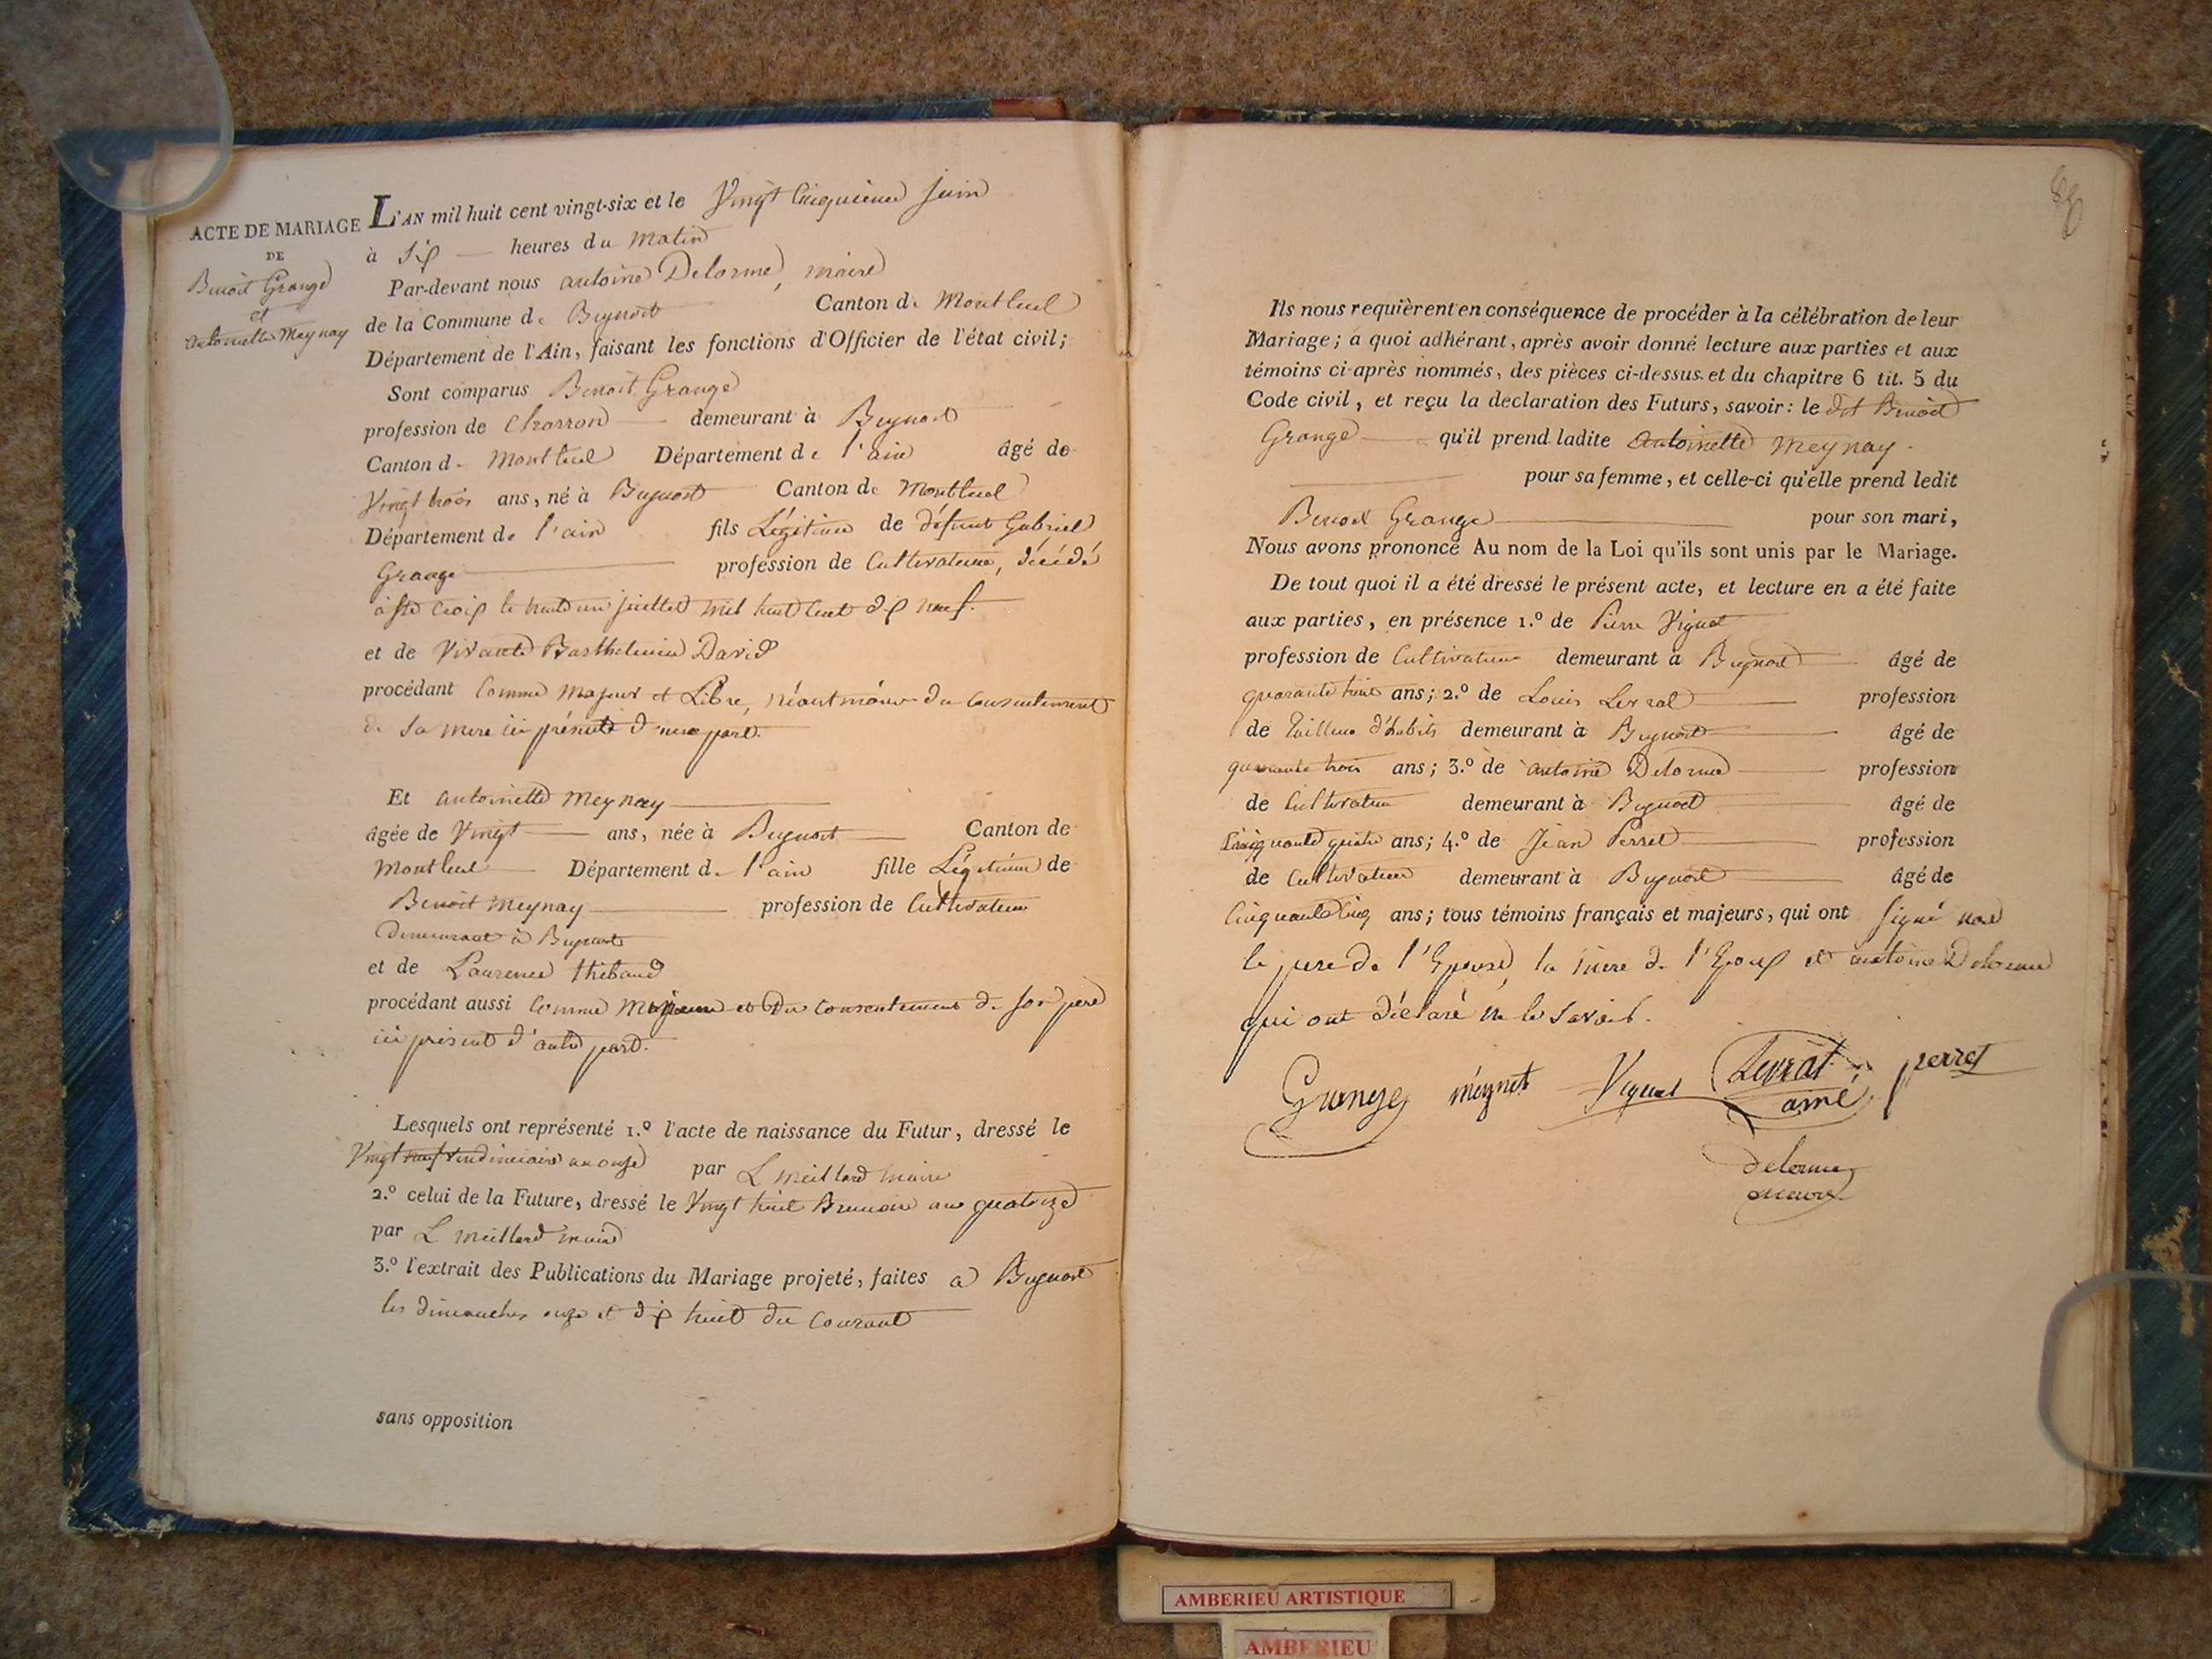 ACTE DE MARIAGE
DE
Benoit Grange
et
Antoinette Meynay
L'AN mil huit cent vingt-six et le Vingt Cinquieme juin
à Six heures du matin
Par-devant nous antoine Delorme, maire
de la Commune de Beynost Canton de Montluel
Département de l'Ain, faisant les fonctions d'Officier de l'état civil;
Sont comparus Benoit Grange
profession de Charron demeurant à Beynost
Canton de Montluel Département de l'ain âgé de
Vingt trois ans, né à Beynost Canton de Montluel
Département de l'ain fils Légitime de défunt Gabriel
Grange profession de Cultivateur, décédé
à Ste Croix le trente un juillet mil huit cent dix neuf.
et de Barthelemie David
procédant Comme Majeur et Libre, néantmoins du consentement
de Sa mere ici présente d'une part.
Et antoinette Meynay
âgée de Vingt ans, née à Beynost Canton de
Montluel Département de l'ain fille Légitime de
Benoit Meynay profession de Cultivateur
demeurant à Beynost
et de Laurence thibaud
procédant aussi Comme Majeure et Du consentement de Son pere
ici présent d'autre part.
Lesquels ont représenté 1.º l'acte de naissance du Futur, dressé le
Vingt neuf vendimiaire an onze par L Meillard maire
2.º celui de la Future, dressé le Vingt huit Brumaire an quatorze
par L Meillard maire
3.º l'extrait des Publications du Mariage projeté, faites a Beynost
les dimanches onze et dix huit du Courant
sans opposition
Ils nous requièrent en conséquence de procéder à la célébration de leur
Mariage; à quoi adhérant, après avoir donné lecture aux parties et aux
témoins ci-après nommés, des pièces ci-dessus et du chapitre 6 tit. 5 du
Code civil, et reçu la declaration des Futurs, savoir: le dit Benoit
Grange qu'il prend ladite Antoinette Meynay
pour sa femme, et celle-ci qu'elle prend ledit
Benoit Grange pour son mari,
Nous avons prononcé Au nom de la Loi qu'ils sont unis par le Mariage.
De tout quoi il a été dressé le présent acte, et lecture en a été faite
aux parties, en présence 1.º de Pierre Viguet
profession de Cultivateur demeurant à Beynost âgé de
quarante huit ans; 2.º de Louis Levrat profession
de Tailleur d'habits demeurant à Beynost âgé de
quarante trois ans; 3.º de antoine Delorme profession
de Cultivateur demeurant à Beynost âgé de
Cinquante quatre ans; 4.º de Jean Perret profession
de Cultivateur demeurant à Beynost âgé de
Cinquante Cinq ans; tous témoins français et majeurs, qui ont Signé non
le pere de l'Epouse, la mere de l'Epoux et antoine Delorme
qui ont déclaré ne le Savoir.
Grange meynet Viguet Levrat perret
amé
delorme
maire
AMBERIEU ARTISTIQUE
AMBERIEU